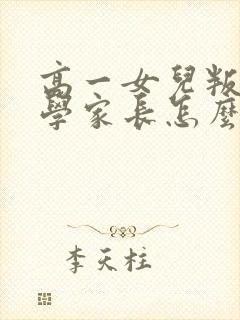 高一女兒叛
學家長怎麼
李天柱